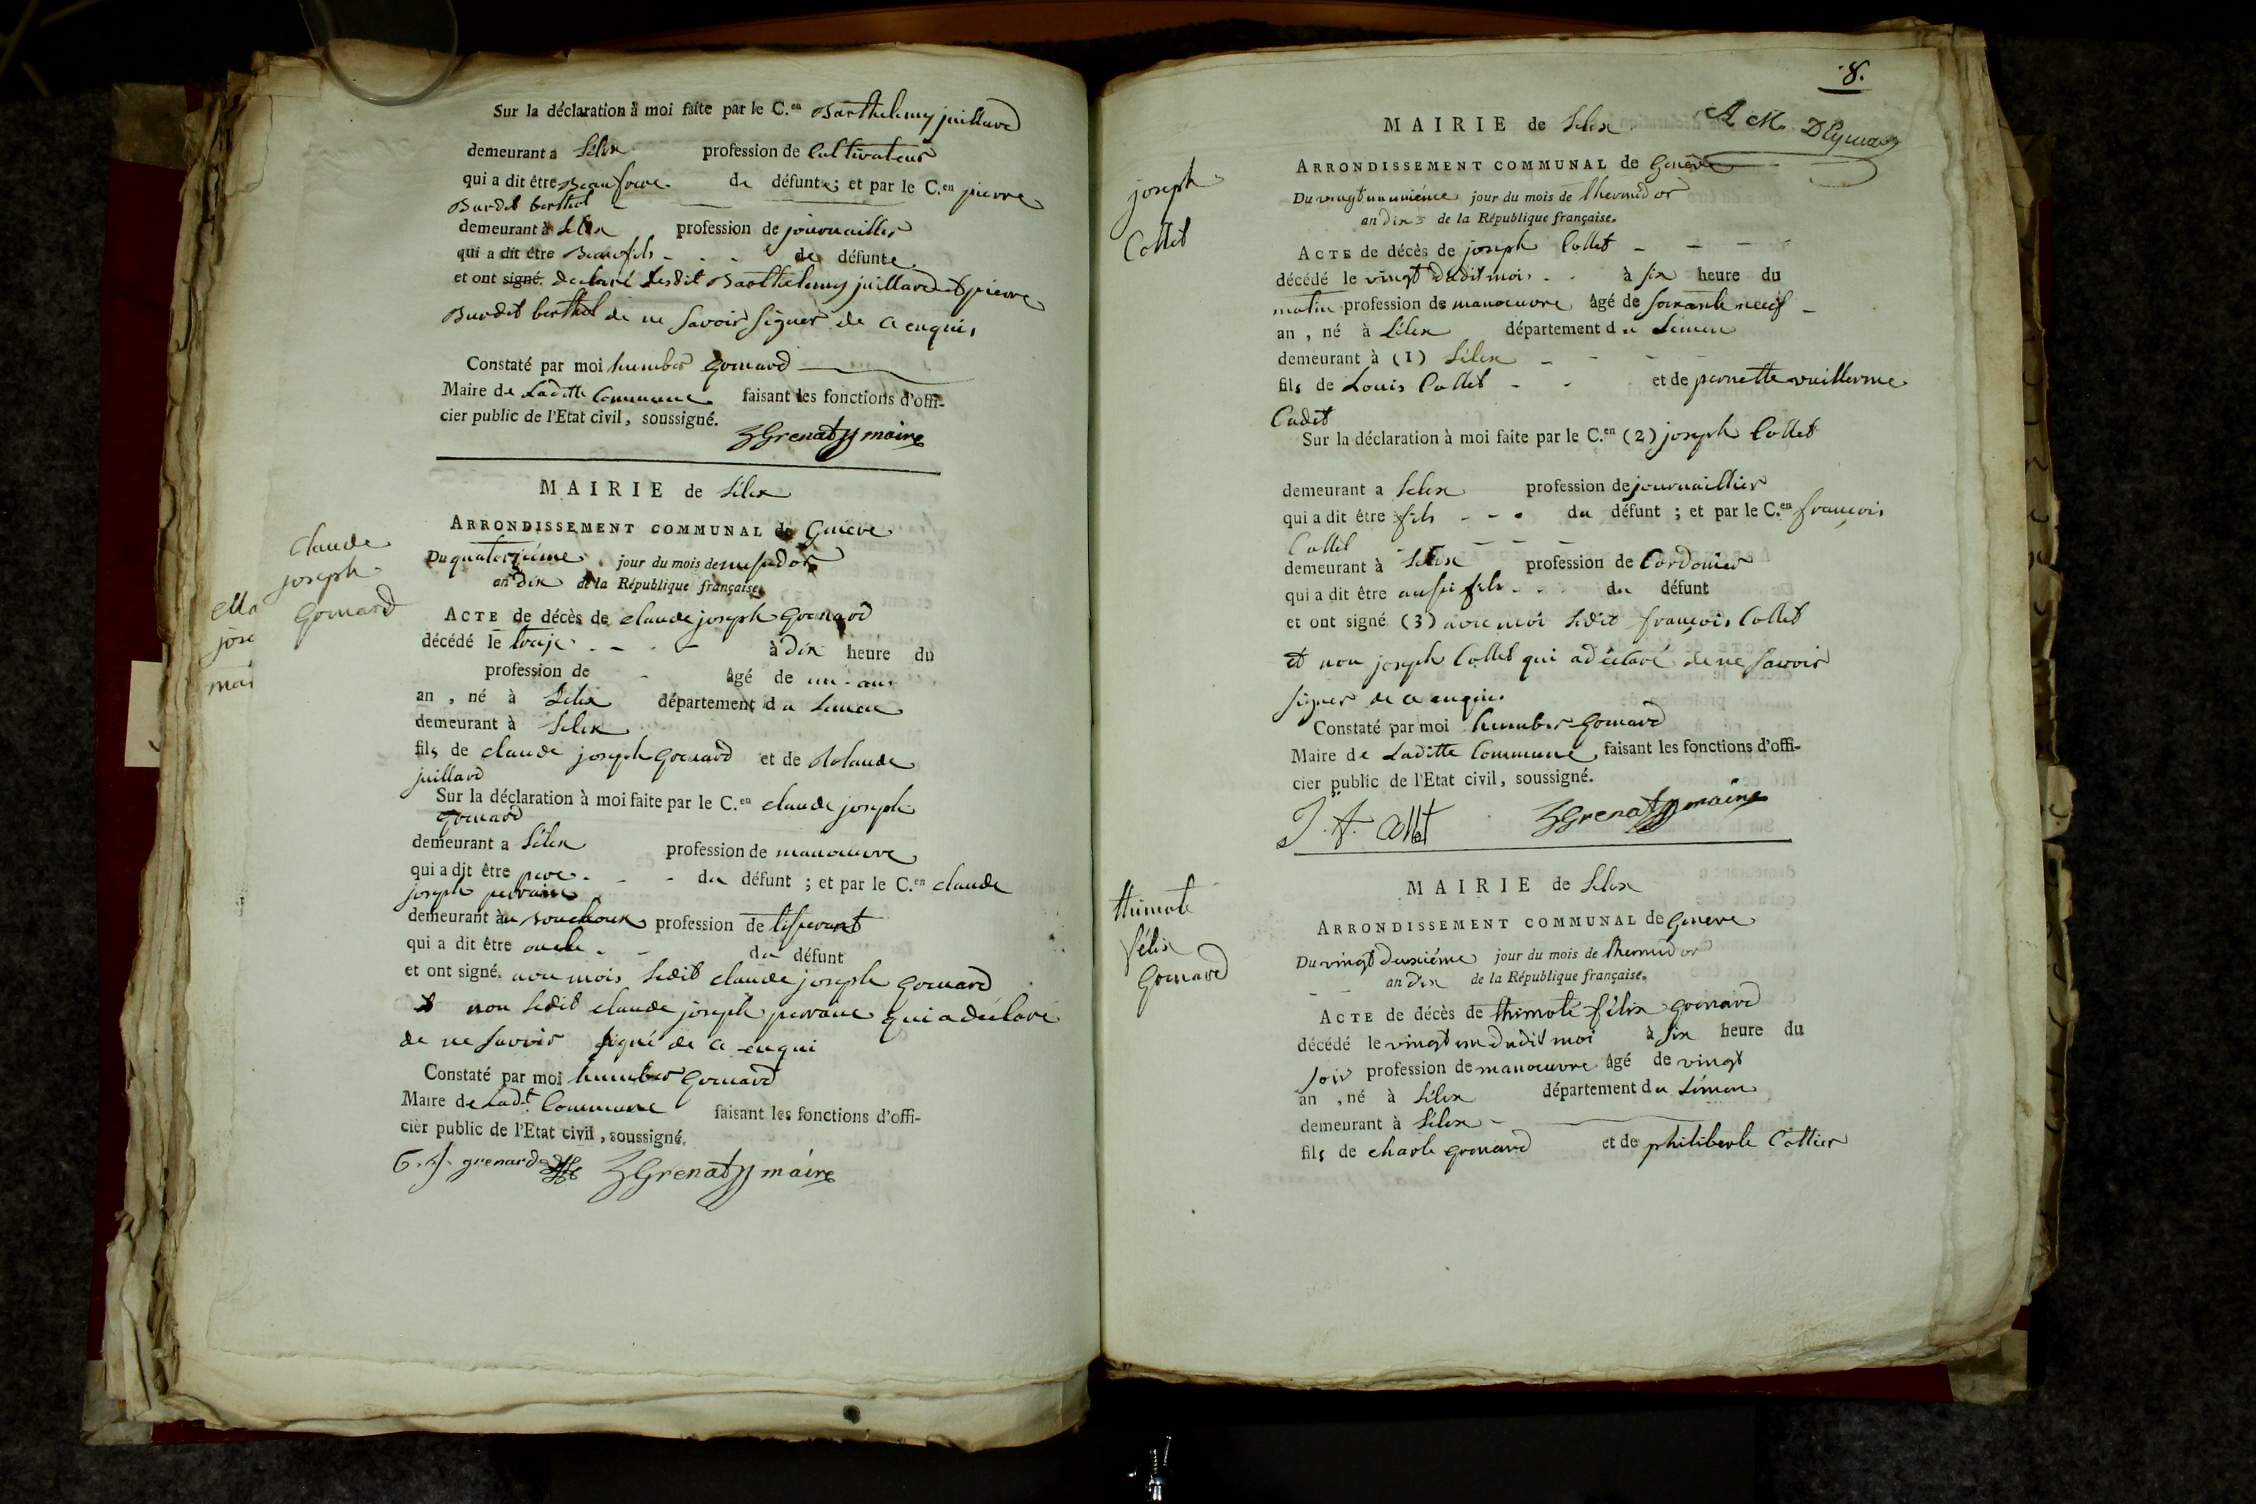 Sur la déclaration à moi faite par le C.en Barthelemy juillard
demeurant a Lélex profession de Cultivateur
qui a dit être Beau frere de défunte; et par le C.en pierre
Burdet berthet
demeurant à Lélex profession de journaillier
qui a dit être Beau fils de défunte
et ont signé. declaré lesdit Barthelemy juillard et pierre
Burdet berthet de ne Savoir Signer de ce enquis
Constaté par moi humber Gonard
Maire de Laditte Commune faisant les fonctions d'offi-
cier public de l'Etat civil, soussigné.
Grenard maire
MAIRIE de Lélex
ARRONDISSEMENT COMMUNAL de Geneve
Du quatorziéme jour du mois de messidor
an Dix de la République française.
claude
joseph
Gonard
ACTE de décès de claude joseph Gonard
décédé le treize à Dix heure du
profession de âgé de un an
an, né à Lélex département du Leman
demeurant à Lelex
fils de claude joseph Gonard et de Rolande
juillard
Sur la déclaration à moi faite par le C.en claude joseph
Gonard
demeurant a Lélex profession de manoeuvre
qui a dit être pere du défunt; et par le C.en claude
joseph
demeurant au profession de
qui a dit être oncle du défunt
et ont signé. avec mois Ledit claude joseph Gonard
et non Ledit claude joseph qui a déclaré
de ne Savoir Signé de ce enqui
Constaté par moi humber Gonard
Maire de Ladt. Commune faisant les fonctions d'offi-
cier public de l'Etat civil, soussigné.
grenard Grenard maire
8.
A M DEymar
MAIRIE de Lelex
ARRONDISSEMENT COMMUNAL de Genève
joseph
Collet
Du vingt unuiéme jour du mois de thermidor
an dix de la République française.
ACTE de décès de joseph Collet
décédé le vingt dudit mois à six heure du
matin profession de manoeuvre âgé de soixante neuf
an, né à Lélex département du Léman
demeurant à (1) Lélex
fils de Louis Collet et de pernette vuillerme
Cadet
Sur la déclaration à moi faite par le C.en (2) joseph Collet
demeurant a Lelex profession de journaillier
qui a dit être fils du défunt; et par le C.en françois
Collet
demeurant à Lélex profession de Cordonier
qui a dit être aussi fils du défunt
et ont signé (3) avec moi Ledit françois Collet
et non joseph Collet qui a déclaré de ne Savoir
Signer de ce enquis
Constaté par moi humber Gonard
Maire de Laditte Commune faisant les fonctions d'offi-
cier public de l'Etat civil, soussigné.
J. f. Collet Grenard maire
MAIRIE de Lelex
ARRONDISSEMENT COMMUNAL de Geneve
thimoté
félix
Gonard
Du vingt deuxiéme jour du mois de thermidor
an Dix de la République française.
ACTE de décès de thimoté félix Gonard
décédé le vingt un dudit moi à six heure du
soir profession de manoeuvre âgé de vingt
an, né à Lélex département du Léman
demeurant à Lélex
fils de charle Gonard et de philiberte Cottier